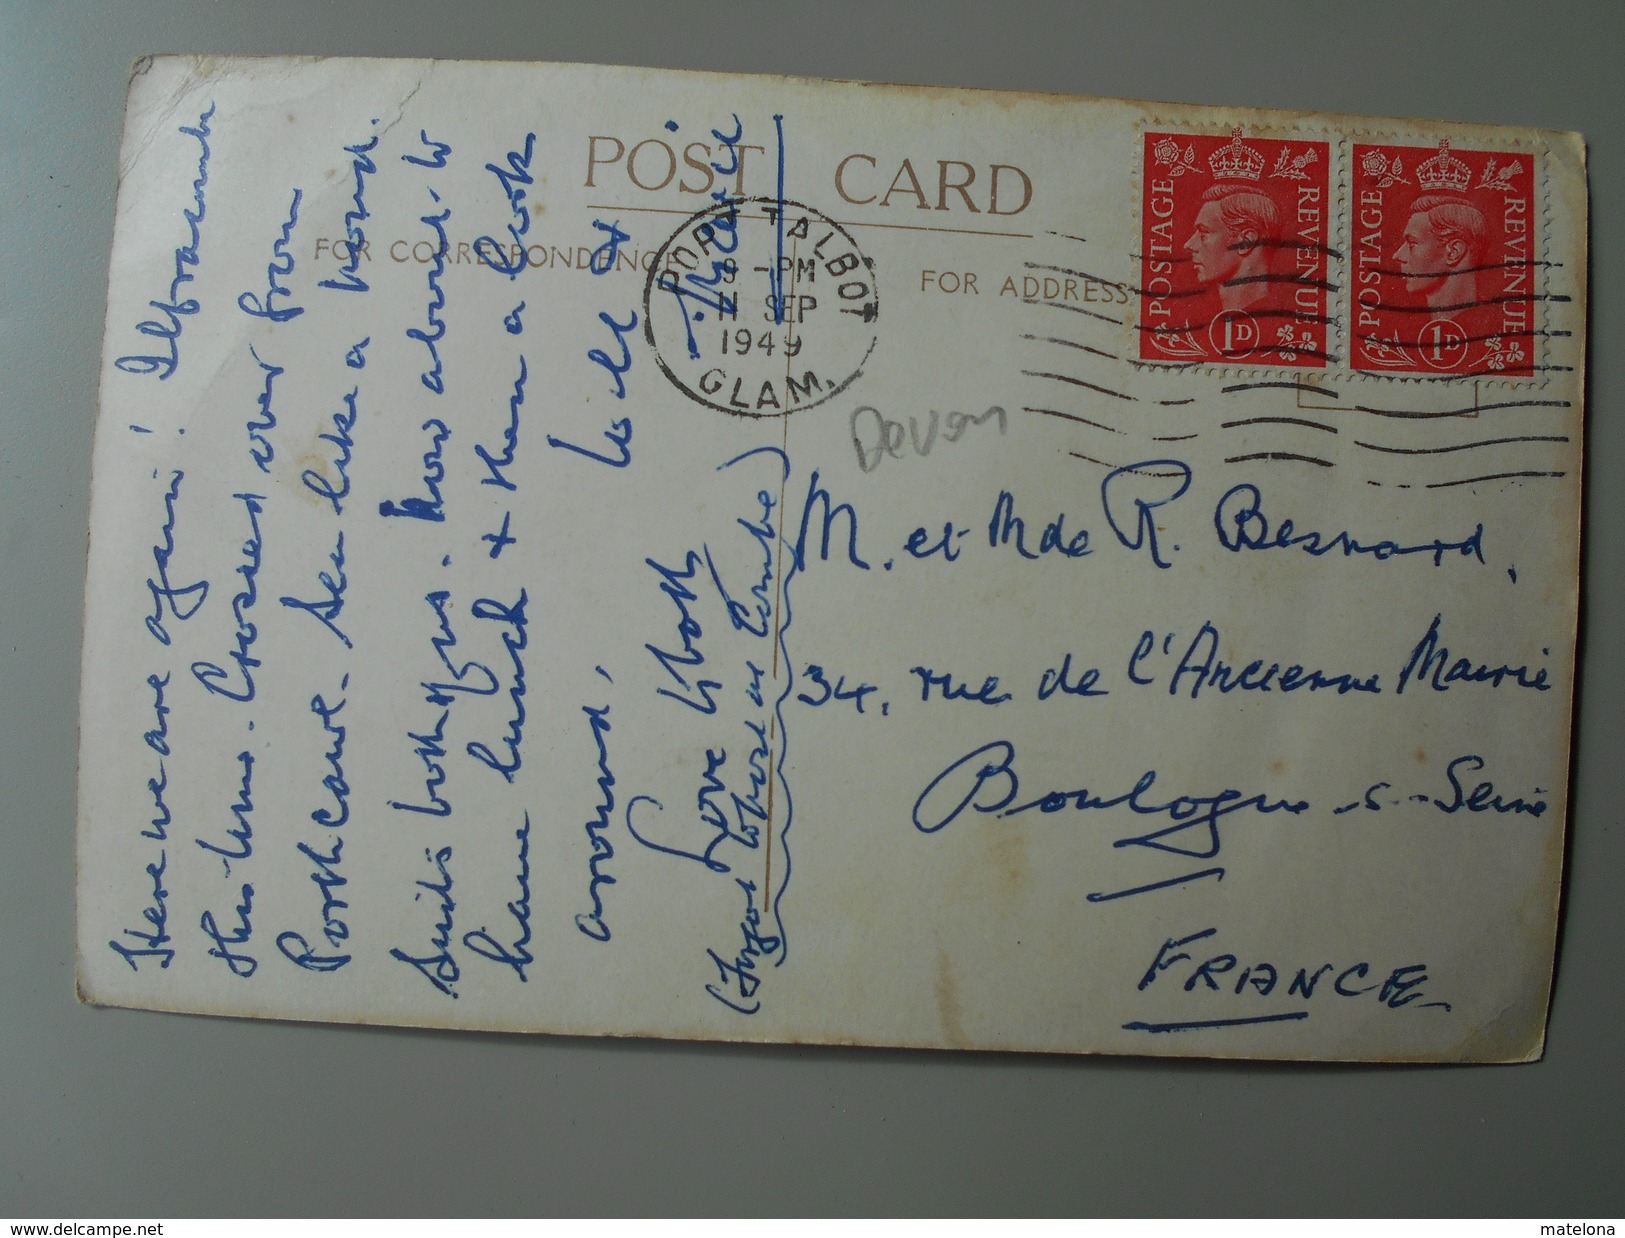 POST CARD
FOR CORRESPONDENCE
FOR ADDRESS
Here we are again! Ilfracombe
this time. Crossed over from
Porthcawl. Sea like a pond.
Suits both of us. Now about to
have lunch & then a look
around.
Love to both
(Forgot to post in Combe)
PORT TALBOT
9 - PM
11 SEP
1949
GLAM.
POSTAGE REVENUE
1D
POSTAGE REVENUE
1D
Devon
M. et Mde R. Besnard,
34, rue de l'Ancienne Mairie
Boulogne-s-Seine
FRANCE
delcampe.net
matelona